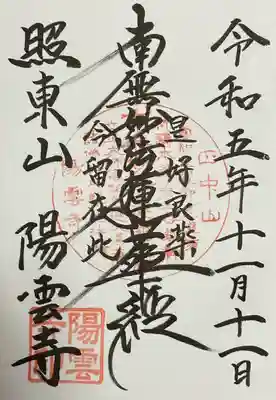 令和五年十一月十一日
是好良薬
南無妙法蓮華経
今留在此
照東山 陽雲寺
陽雲